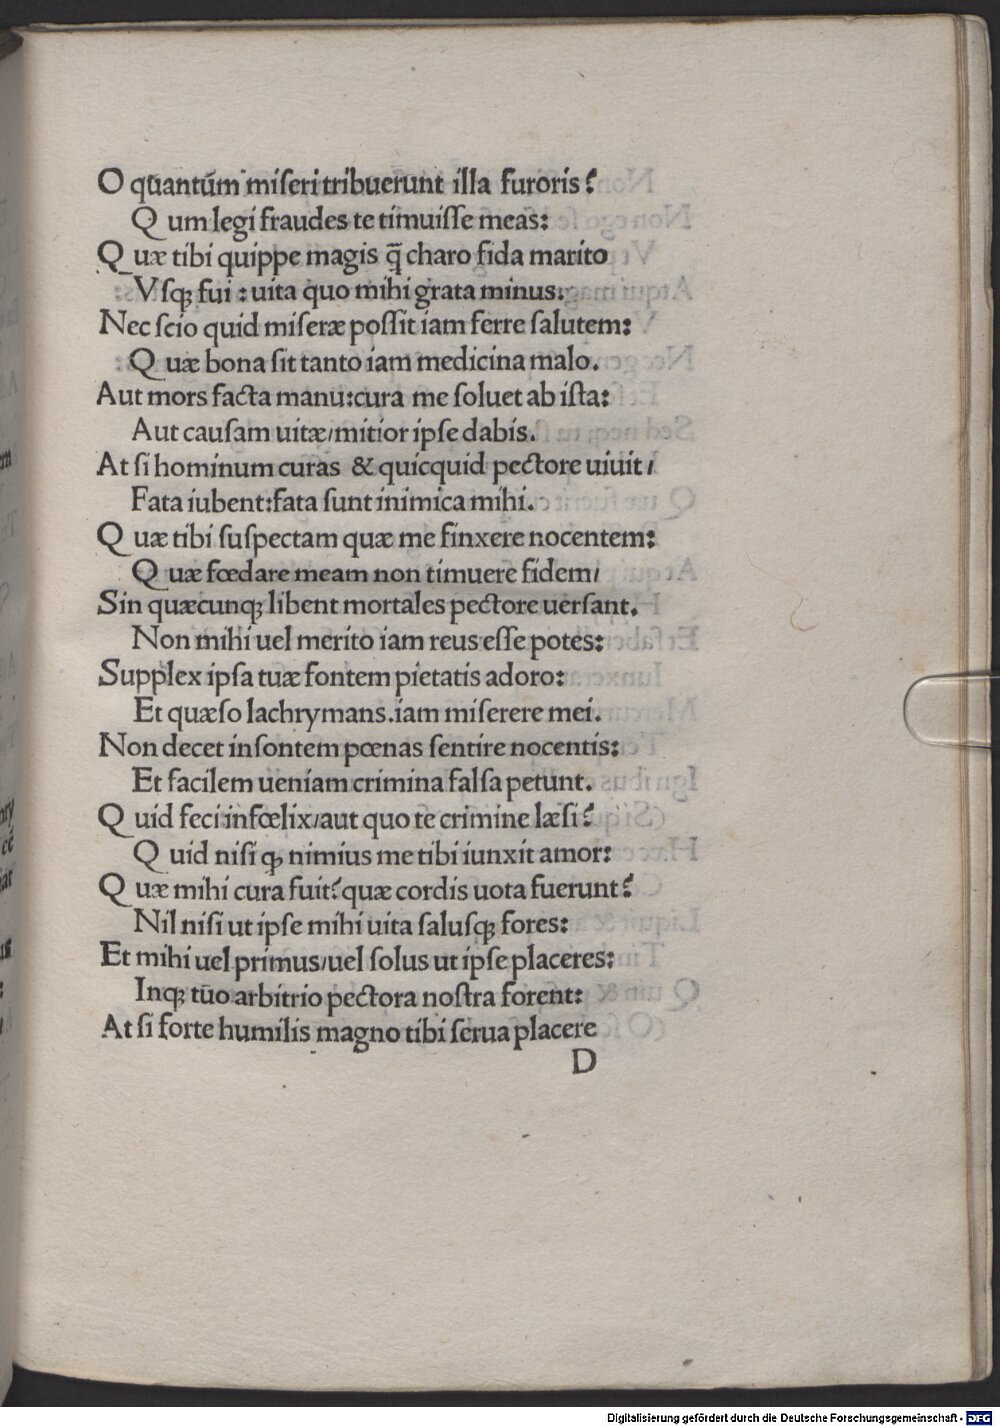 O quantūm miseri tribuerunt illa furoris?
Q um legi fraudes te timuisse meas:
Q uæ tibi quippe magis q̄ charo fida marito
Vsqꝫ fui : uita quo mihi grata minus.
Nec scio quid miseræ possit iam ferre salutem:
Q uæ bona sit tanto iam medicina malo.
Aut mors facta manu:cura me soluet ab ista:
Aut causam uitæ/mitior ipse dabis.
At si hominum curas & quicquid pectore uiuit/
Fata iubent:fata sunt inimica mihi.
Q uæ tibi suspectam quæ me finxere nocentem:
Q uæ fœdare meam non timuere fidem/
Sin quæcunqꝫ libent mortales pectore uersant.
Non mihi uel merito iam reus esse potes:
Supplex ipsa tuæ fontem pietatis adoro:
Et quæso lachrymans.iam miserere mei.
Non decet insontem pœnas sentire nocentis:
Et facilem ueniam crimina falsa petunt.
Q uid feci infœlix/aut quo te crimine læsi?
Q uid nisi qꝫ nimius me tibi iunxit amor:
Q uæ mihi cura fuit?quæ cordis uota fuerunt?
Nil nisi ut ipse mihi uita salusqꝫ fores:
Et mihi uel primus/uel solus ut ipse placeres:
Inqꝫ tuo arbitrio pectora nostra forent:
At si forte humilis magno tibi serua placere
D
Digitalisierung gefördert durch die Deutsche Forschungsgemeinschaft - DFG